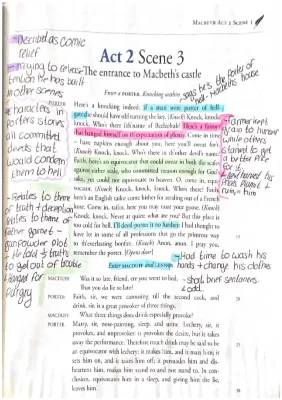 MACBETH ACT 2 SCENE 3
- Described as comic
relief
- trying to release
tension he has built
in other scenes
Act 2 Scene 3
The entrance to Macbeth's castle
says he's the porter of
hell - Macbeth's house
Enter a PORTER. Knocking within
characters in
porters stories
all committed
deceits that
would condem
them to hell
PORTER
Here's a knocking indeed: if a man were porter of hell-
gate he should have old turning the key. (Knock) Knock,
knock, knock. Who's there i'th'name of Beelzebub? Here's a farmer
that hanged himself on th'expectation of plenty. Come in time
- have napkins enough about you, here you'll sweat for't.
(Knock) Knock, knock. Who's there in th'other devil's name?
Faith, here's an equivocator that could swear in both the scales
against either scale, who committed treason enough for God's
sake, yet could not equivocate to heaven. O, come in, equi-
vocator. (Knock) Knock, knock, knock. Who's there? Faith,
here's an English tailor come hither for stealing out of a French
hose. Come in, tailor, here you may roast your goose. (Knock)
Knock, knock. Never at quiet: what are you? But this place is
too cold for hell. I'll devil-porter it no further: I had thought to
have let in some of all professions that go the primrose way
to th'everlasting bonfire. (Knock) Anon, anon. I pray you,
remember the porter. (Opens door)
- Farmer kept
grain to himself
while others
- Relates to theme
of truth + deception
- Had time to wash his
hands + change his clothes
Enter MACDUFF and LENNOX
MACDUFF
Was it so late, friend, ere you went to bed,
That you do lie so late?
- short, blunt sentences
- odd.
PORTER
Faith, sir, we were carousing till the second cock, and
drink, sir, is a great provoker of three things.
MACDUFF
What three things does drink especially provoke?
PORTER
Marry, sir, nose-painting, sleep, and urine. Lechery, sir, it
provokes, and unprovokes: it provokes the desire, but it takes
away the performance. Therefore much drink may be said to be
an equivocator with lechery: it makes him, and it mars him; it
sets him on, and it takes him off; it persuades him and dis-
heartens him, makes him stand to and not stand to. In con-
clusion, equivocates him in a sleep, and giving him the lie,
leaves him.